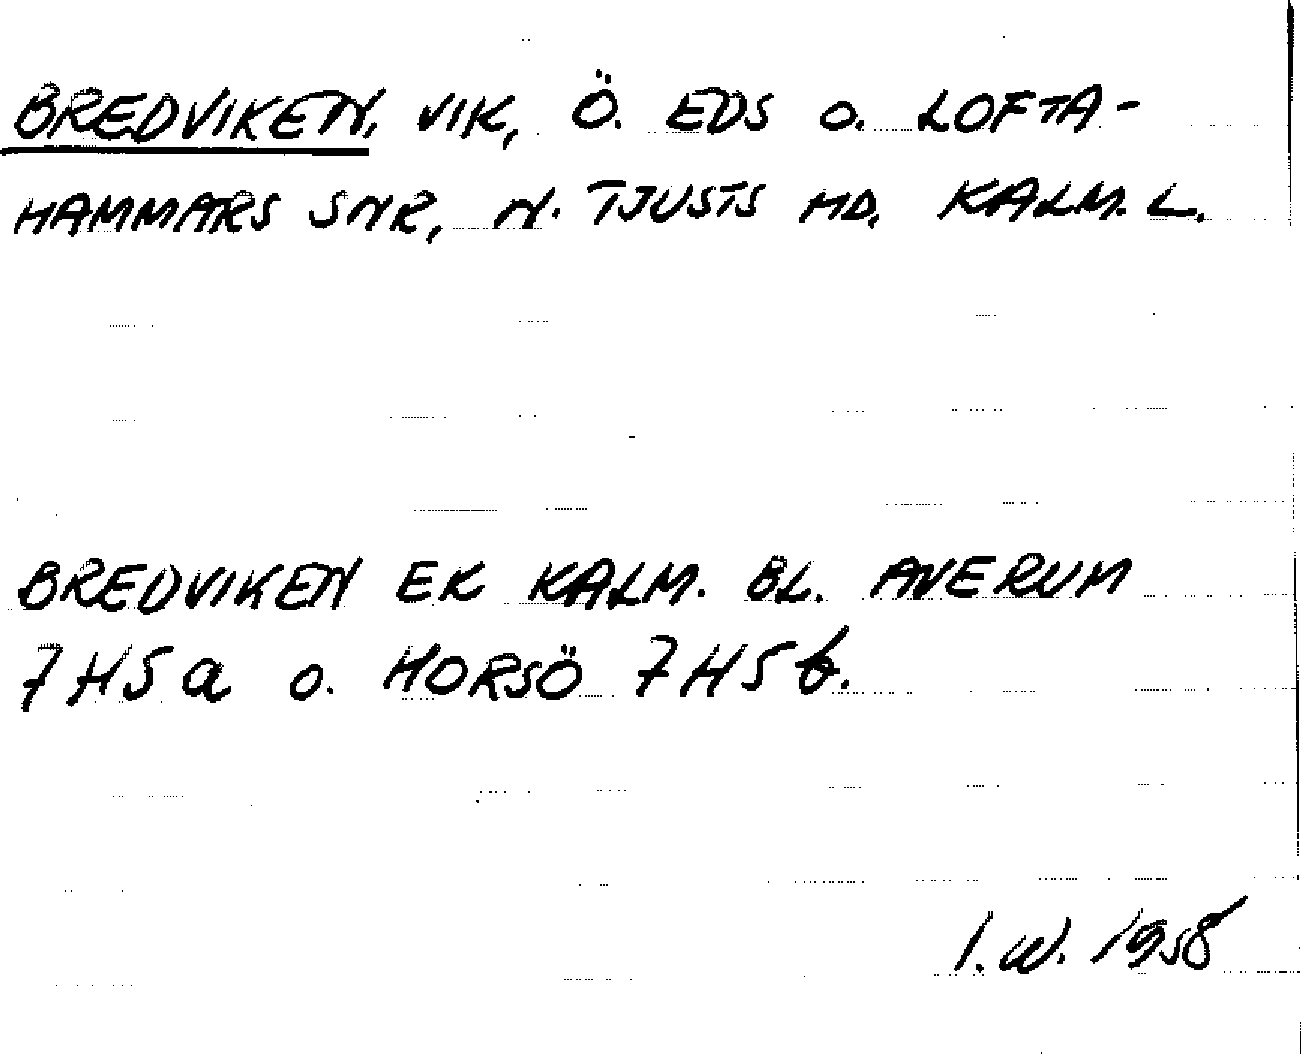 BREDVIKEN, VIK, Ö. EDS o. LOFTA-
HAMMARS SNR, N. TJUSTS HD, KALM. L.
BREDVIKEN EK KALM. BL. AVERUM
7H5a o. HORSÖ 7H5b.
I.W. 1958